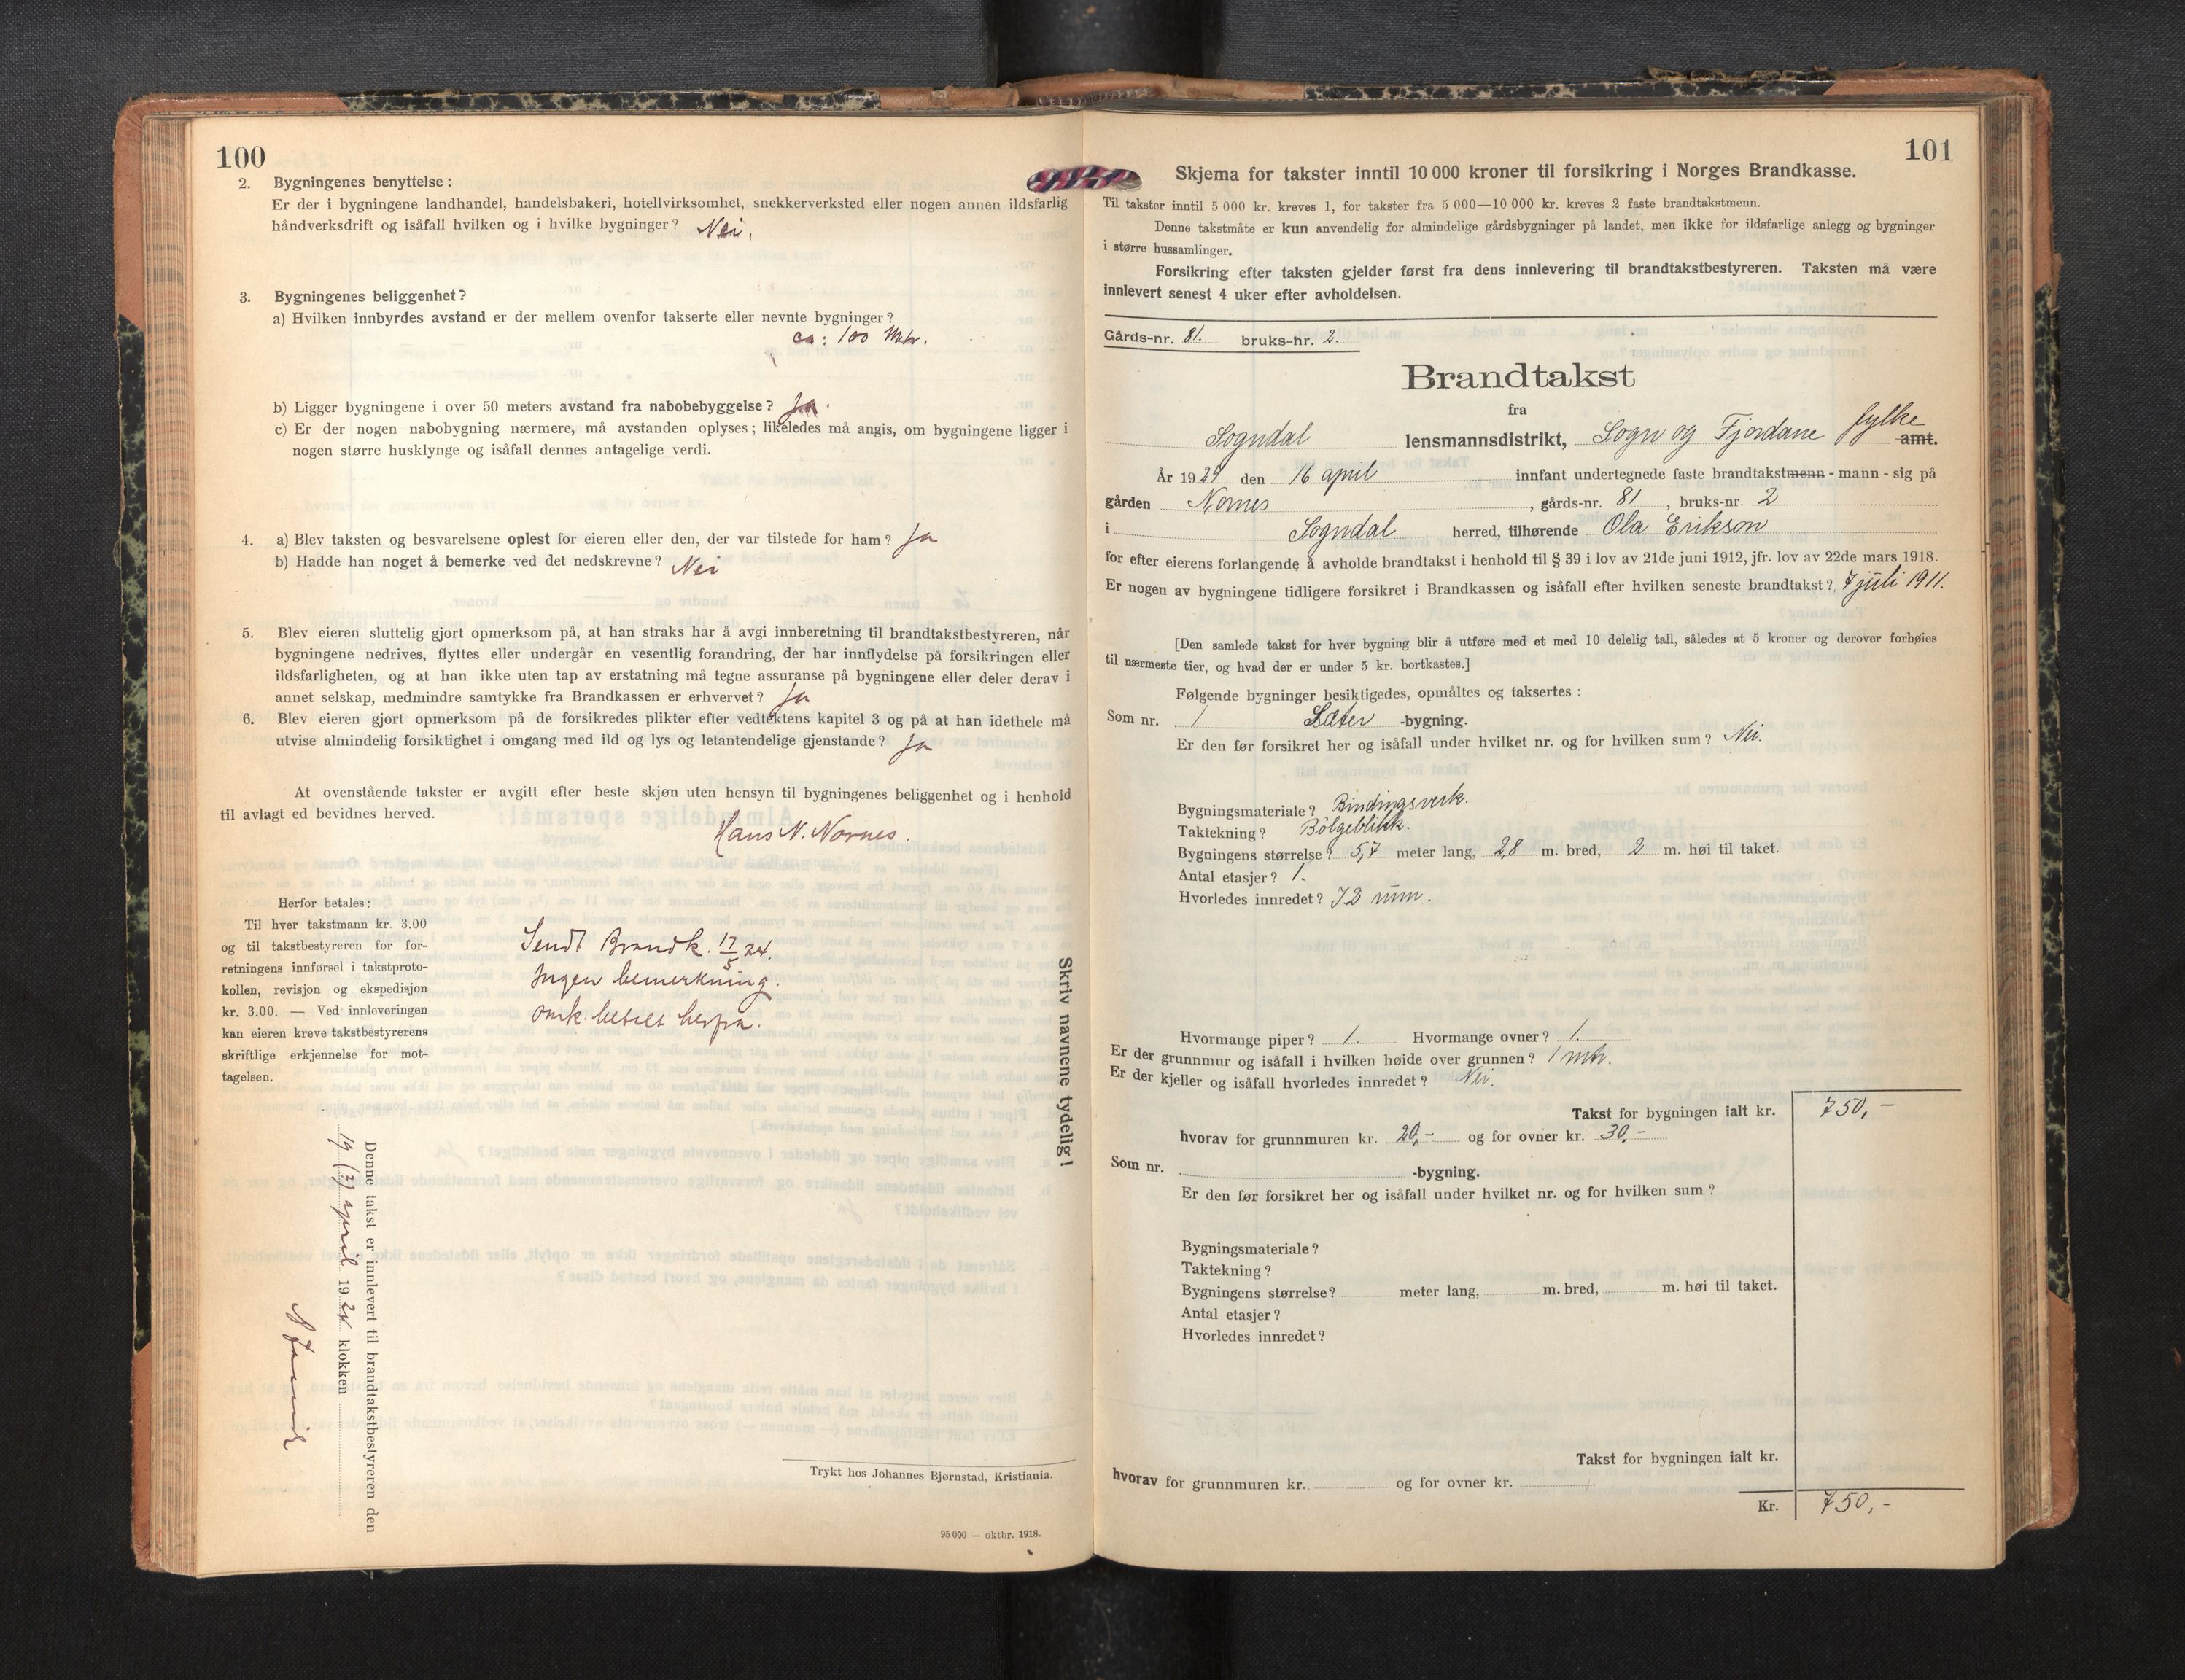 100
2. Bygningenes benyttelse:
Er der i bygningene landhandel, handelsbakeri, hotellvirksomhet, snekkerverksted eller nogen annen ildsfarlig
håndverksdrift og isåfall hvilken og i hvilke bygninger? Nei.
3. Bygningenes beliggenhet?
a) Hvilken innbyrdes avstand er der mellem ovenfor takserte eller nevnte bygninger?
ca: 100 Mtr.
b) Ligger bygningene i over 50 meters avstand fra nabobebyggelse? Ja.
c) Er der nogen nabobygning nærmere, må avstanden oplyses; likeledes må angis, om bygningene ligger i
nogen større husklynge og isåfall dennes antagelige verdi.
4. a) Blev taksten og besvarelsene oplest for eieren eller den, der var tilstede for ham? Ja
b) Hadde han noget å bemerke ved det nedskrevne? Nei
5. Blev eieren sluttelig gjort opmerksom på, at han straks har å avgi innberetning til brandtakstbestyreren, når
bygningene nedrives, flyttes eller undergår en vesentlig forandring, der har innflydelse på forsikringen eller
ildsfarligheten, og at han ikke uten tap av erstatning må tegne assuranse på bygningene eller deler derav i
annet selskap, medmindre samtykke fra Brandkassen er erhvervet? Ja
6. Blev eieren gjort opmerksom på de forsikredes plikter efter vedtektens kapitel 3 og på at han idethele må
utvise almindelig forsiktighet i omgang med ild og lys og letantendelige gjenstande? Ja
At ovenstående takster er avgitt efter beste skjøn uten hensyn til bygningenes beliggenhet og i henhold
til avlagt ed bevidnes herved.
Hans N. Nornes.
Herfor betales:
Til hver takstmann kr. 3.00
og til takstbestyreren for for-
retningens innførsel i takstproto-
kollen, revisjon og ekspedisjon
kr. 3.00. — Ved innleveringen
kan eieren kreve takstbestyrerens
skriftlige erkjennelse for mot-
tagelsen.
Sendt Brandk. 17/5 24.
Ingen bemerkning.
omk. betalt herfra.
Skriv navnene tydelig!
Denne takst er innlevert til brandtakstbestyreren den
19 (?) april 1924 klokken
Trykt hos Johannes Bjørnstad, Kristiania.
95 000 — oktbr. 1918.
101
Skjema for takster inntil 10 000 kroner til forsikring i Norges Brandkasse.
Til takster inntil 5 000 kr. kreves 1, for takster fra 5 000—10 000 kr. kreves 2 faste brandtakstmenn.
Denne takstmåte er kun anvendelig for almindelige gårdsbygninger på landet, men ikke for ildsfarlige anlegg og bygninger
i større hussamlinger.
Forsikring efter taksten gjelder først fra dens innlevering til brandtakstbestyreren. Taksten må være
innlevert senest 4 uker efter avholdelsen.
Gårds-nr. 81. bruks-nr. 2.
Brandtakst
fra
Sogndal lensmannsdistrikt, Sogn og Fjordane fylke amt.
År 1924 den 16 april innfant undertegnede faste brandtakstmenn - mann - sig på
gården Nornes, gårds-nr. 81, bruks-nr. 2
i Sogndal herred, tilhørende Ola Erikson
for efter eierens forlangende å avholde brandtakst i henhold til § 39 i lov av 21de juni 1912, jfr. lov av 22de mars 1918.
Er nogen av bygningene tidligere forsikret i Brandkassen og isåfall efter hvilken seneste brandtakst? 7 juli 1911.
[Den samlede takst for hver bygning blir å utføre med et med 10 delelig tall, således at 5 kroner og derover forhøies
til nærmeste tier, og hvad der er under 5 kr. bortkastes.]
Følgende bygninger besiktigedes, opmåltes og taksertes:
Som nr. 1 Sæter -bygning.
Er den før forsikret her og isåfall under hvilket nr. og for hvilken sum? Nei.
Bygningsmateriale? Bindingsverk.
Taktekning? Bölgeblikk.
Bygningens størrelse? 5,7 meter lang, 2,8 m. bred, 2 m. høi til taket.
Antal etasjer? 1.
Hvorledes innredet? I 2 rum.
Hvormange piper? 1. Hvormange ovner? 1.
Er der grunnmur og isåfall i hvilken høide over grunnen? 1 mtr.
Er der kjeller og isåfall hvorledes innredet? Nei.
Takst for bygningen ialt kr. 750,-
hvorav for grunnmuren kr. 20,- og for ovner kr. 30,-
Som nr. -bygning.
Er den før forsikret her og isåfall under hvilket nr. og for hvilken sum?
Bygningsmateriale?
Taktekning?
Bygningens størrelse? meter lang, m. bred, m. høi til taket.
Antal etasjer?
Hvorledes innredet?
Takst for bygningen ialt kr.
hvorav for grunnmuren kr. og for ovner kr.
Kr. 750,-